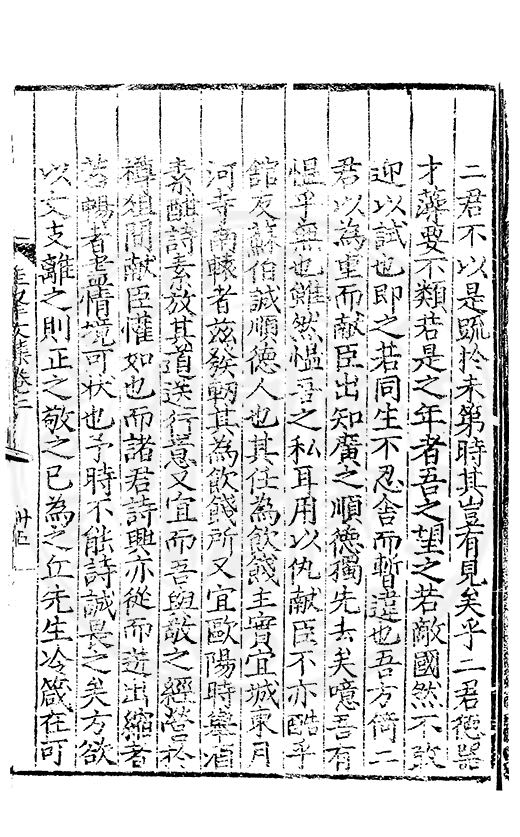 二君不以是疏於未第時其豈有見矣乎二君德器
才藻要不類若是之年者吾之望之若敵國然不敢
迎以試也即之若同生不忍舍而暫違也吾方倚二
君以為重而獻臣出知廣之順德獨先去矣噫吾有
慍乎無也雖然慍吾之私耳用以仇獻臣不亦酷乎
館友蘇伯誠順德人也其仕為飲餞主實宜城東月
河寺南轅者茲發軔其為飲餞所又宜歐陽時舉酒
素酣詩素放其道送行意又宜而吾與敬之經營於
樽俎間獻臣懽如也而諸君詩興亦從而遄出縮者
若暢者盡情境可狀也予時不能詩誠畏之矣方欲
以文支離之則正之敬之已為之丘先生冷箴在可
文集卷二
卅五